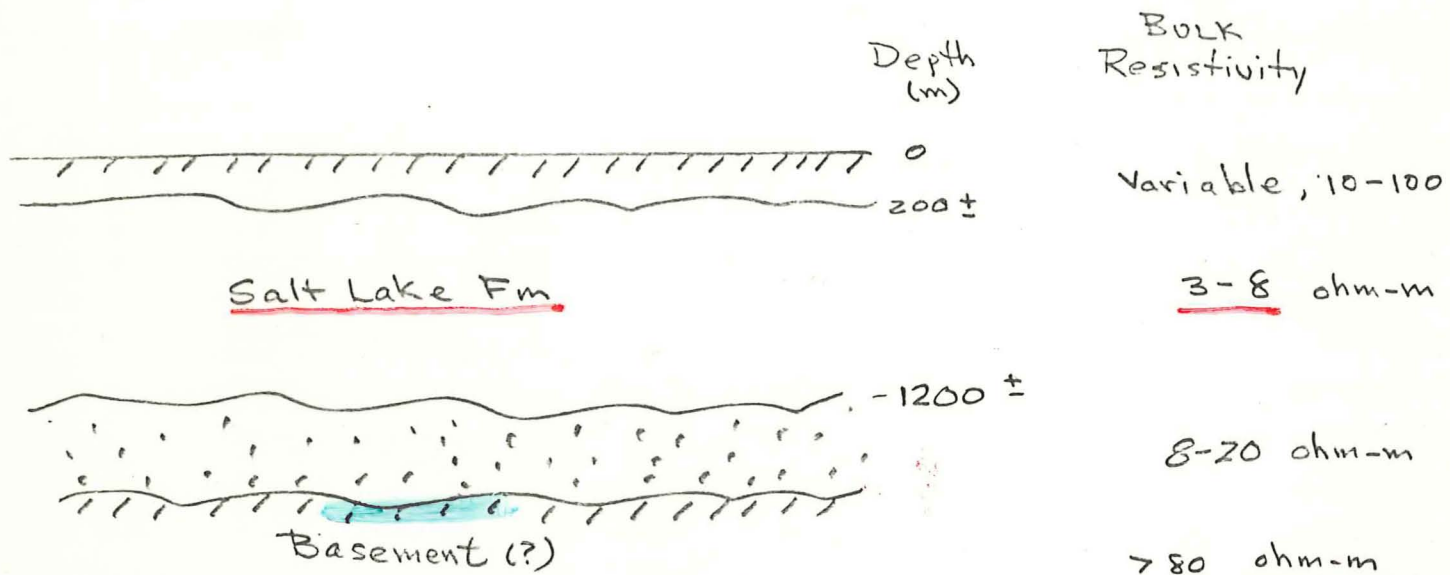 Depth
(m)
BULK
Resistivity
0
Variable, 10-100
200 ±
Salt Lake Fm
3-8 ohm-m
-1200 ±
8-20 ohm-m
Basement (?)
> 80 ohm-m